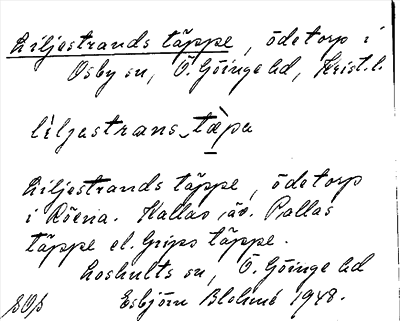 Liljestrands täppe, ödetorp i
Osby sn, Ö. Göinge hd, Krist. l.
lìljastrans tæ̀pa
Liljestrands täppe, ödetorp
i Röena. Kallas äv. Pallas
täppe el. Grips täppe.
Loshults sn, Ö. Göinge hd
Esbjörn Blohmé 1948.